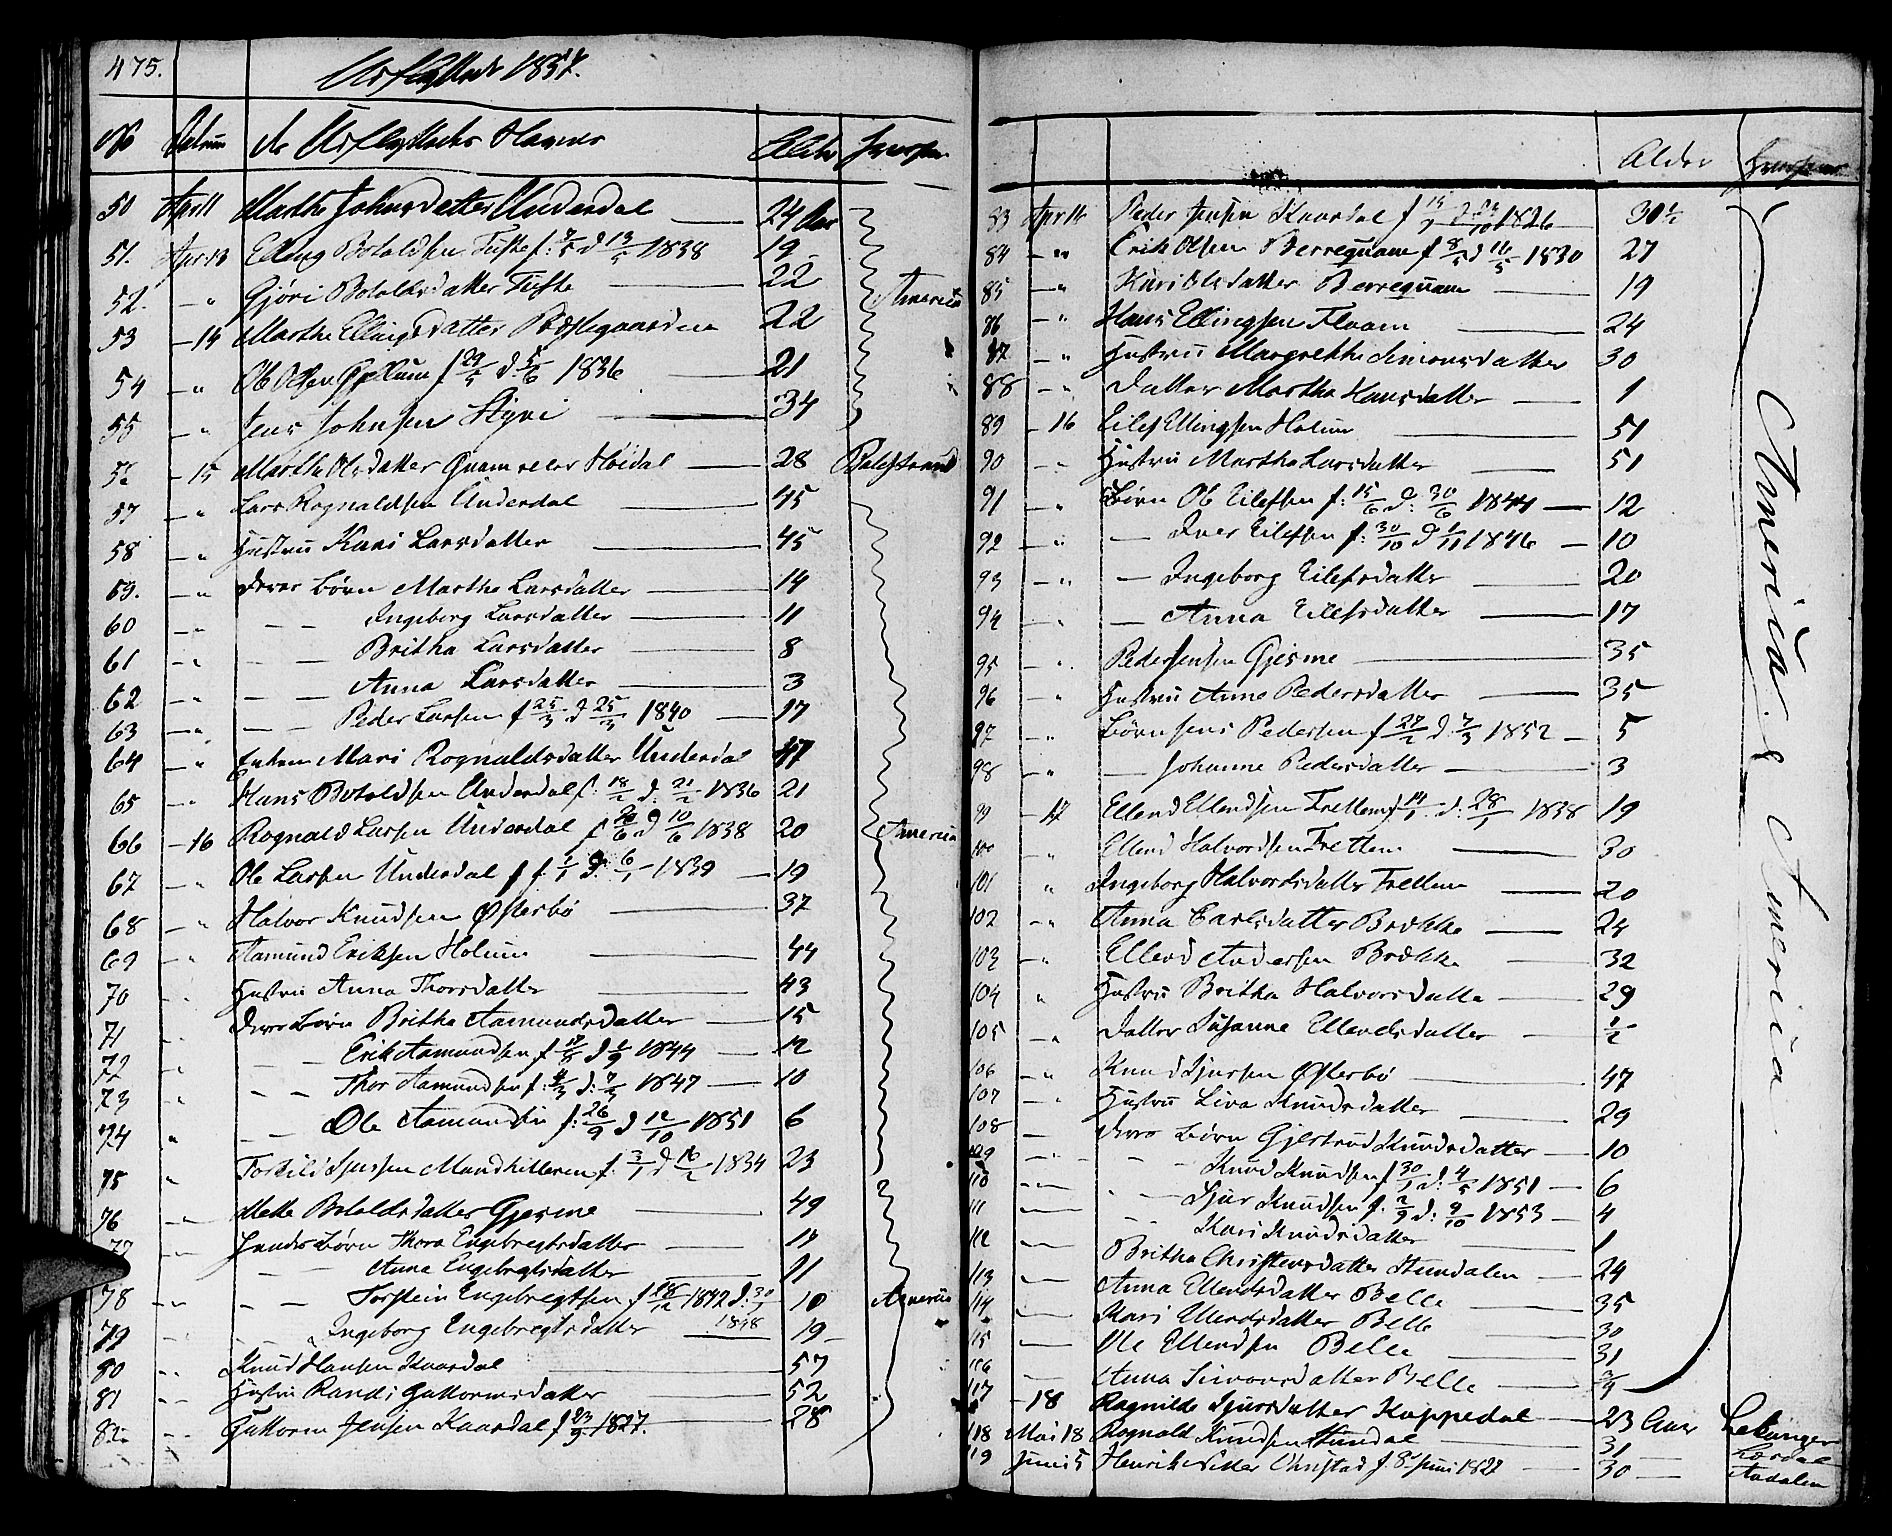 475.
Udflyttede 1857.
No Datum de Udflyttedes Navne Alder Hvorhen
50 April 11 Marthe Johnsdatter Underdal 24 Aar
51. Apr: 13 Elling Botoldsen Tufte f: 7/5 d 13/5 1838 19
52. " Gjøri Botoldsdatter Tufte 22 America
53 14 Marthe Ellingsdatter Præstegaarden 22
54 " Ole Olsen f 29/5 d. 5/6 1836 21
55 " Jens Johnsen Styvi 34
56 15 Marthe Olsdatter Qvam Høidal 28 Balestrand
57 " Lars Rognaldsen Underdal 45
58 " Hustru Kari Larsdatter 45
59. " deres børn Marthe Larsdatter 14
60 " Ingeborg Larsdatter 11
61 " Britha Larsdatter 8
62 " Anna Larsdatter 3
63 " Peder Larsen f 25/3 d 25/3 1840 17
64 " Enken Mari Rognaldsdatter Underdal 47
65 " Hans Botoldsen Underdal f: 18/2 d. 21/2 1836 21
66 16 Rognald Larsen Underdal f d 10/6 1838 20 America
67 " Ole Larsen Underdal f 1/1 d. 6/1 1839 19
68 " Halvor Knudsen Østerbø 37
69 " Aamund Eriksen Holum 44
70 " Hustru Anna Thorsdatter 43
71 " deres børn Britha Aamundsdatter 15
72 " Erik Aamundsen f 17/8 d 1/9 1844 12
73 " Thor Aamundsen f: 4/3 d: 7/3 1847 10
74 " Ole Aamundsen f: 26/9 d 12/10 1851 6
75 " Torkild Sjursen Mandhilleren f. 3/1 d 16/2 1834 23
76 " Mette Botoldsdatter Gjesme 49
77 " hendes børn Thora Engebregtsdatter 17
" Anna Engebregtsdatter 21
78 " Torstein Engebregtsen f 28/12 1842 d. 30/1 10 America
79 " Ingeborg Engebregtsdatter 1848 19
80 " Knud Hansen Kaardal 57
81 " Hustru Randi Guttormsdatter 52
82 Guttorm Jensen Kaardal f 23/9 1827. 28
Alder Hvorhen
83 Apr 16 Peder Jensen Kaardal f d 1826 30½
84 " Erik Olsen Berrequam f 8/5 d 16/5 1830 27
85 " Kari Olsdatter Berrequam 19
86 " Hans Ellingsen Flaam 24
87 " Hustru Margrethe Simonsdatter 30
88 " Datter Martha Hansdatter 1
89 16 Eilef Ellingsen Holum 51
90 " Hustru Martha Larsdatter 51
91 " Børn Ole Eilefsen f: 15/6 d: 30/6 1844 12
92 " Iver Eilefsen f: 30/10 d 1/11 1846 10
93 " Ingeborg Eilefsdatter 20
94 " Anna Eilefsdatter 17
95 " Peder Jensen Gjesme 35
96 " Hustru Anne Pedersdatter 35
97 " Børn Jens Pedersen f 27/2 d. 7/3 1852 5
98 " Johanne Pedersdatter 3
99 17 Ellend Ellendsen Frettem f 14/1 d: 28/1 1838 19
100 " Ellend Halvordsen Frettem 30
101 " Ingeborg Halvordsdatter Frettem 20
102 " Anna Carlsdatter Brække 24
103 " Ellend Andersen Brække 32
104 " Hustru Britha Halvorsdatter 29
105 " Datter Susanne Ellendsdatter ½
106 " Knud Sjursen Østerbø 47
107 " Hustru Liva Knudsdatter 29
108 deres børn Gjertrud Knudsdatter 10
109 Knud Knudsen f 30/1 d: 4/5 1851 6
110 Sjur Knudsen f. 2/9 d: 9/10 1853 4
111 Kari Knudsdatter 1
112 Britha Christensdatter Stundalen 24
113 Anna Ellendsdatter Belle 35
114 Kari Ellendsdatter Belle 30
115 Ole Ellendsen Belle 31
116 Anna Simonsdatter Belle ¾
117 18 Ragnilde Sjursdatter Kappedal 23 Aar Lekanger
118 Mai 18 Rognald Knudsen Stundal 31 Lærdal
119 Juni 5 Henrik Ohnstad f 8 Juni 1827 30 Aadalen
America America